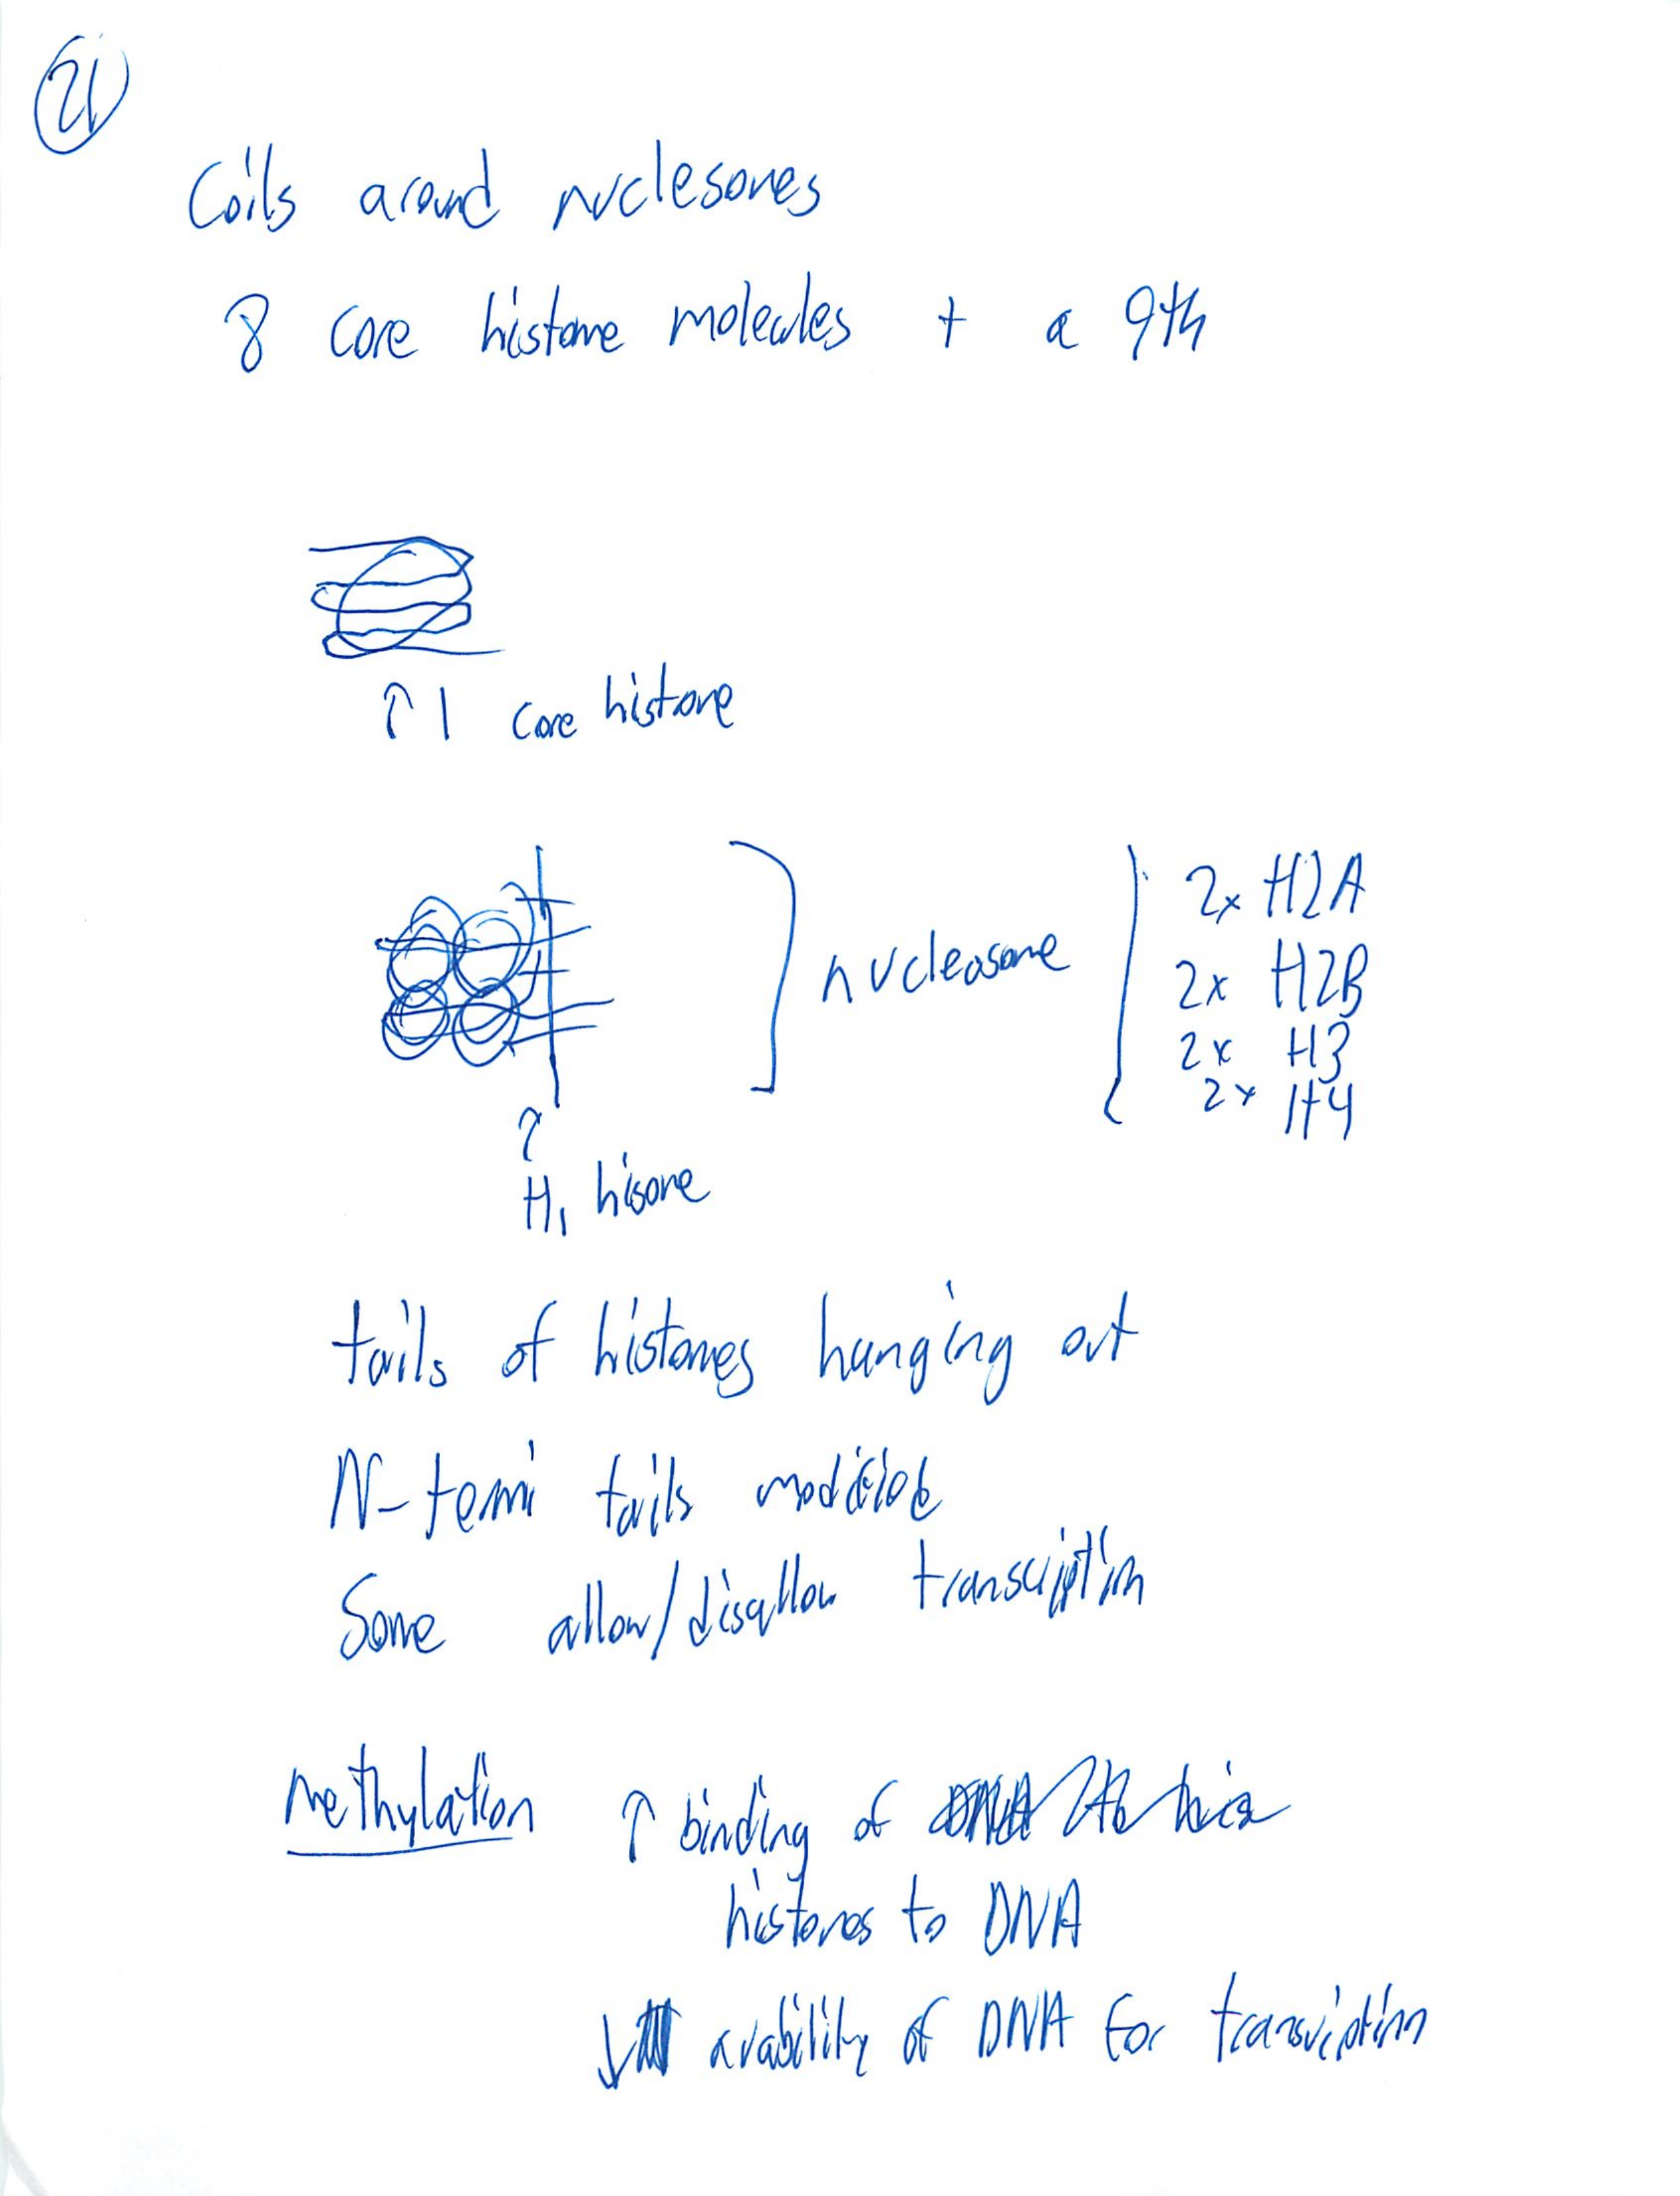 21
Coils around nuclesomes
8 core histone molecules + a 9th
↑ 1 core histone
nucleosome
2x H2A
2x H2B
2x H3
2x H4
↑
H1 hisone
tails of histones hanging out
N-termi tails modified
Some allow/disallow transcription
Methylation ↑ binding of
histones to DNA
↓ avability of DNA for transcription